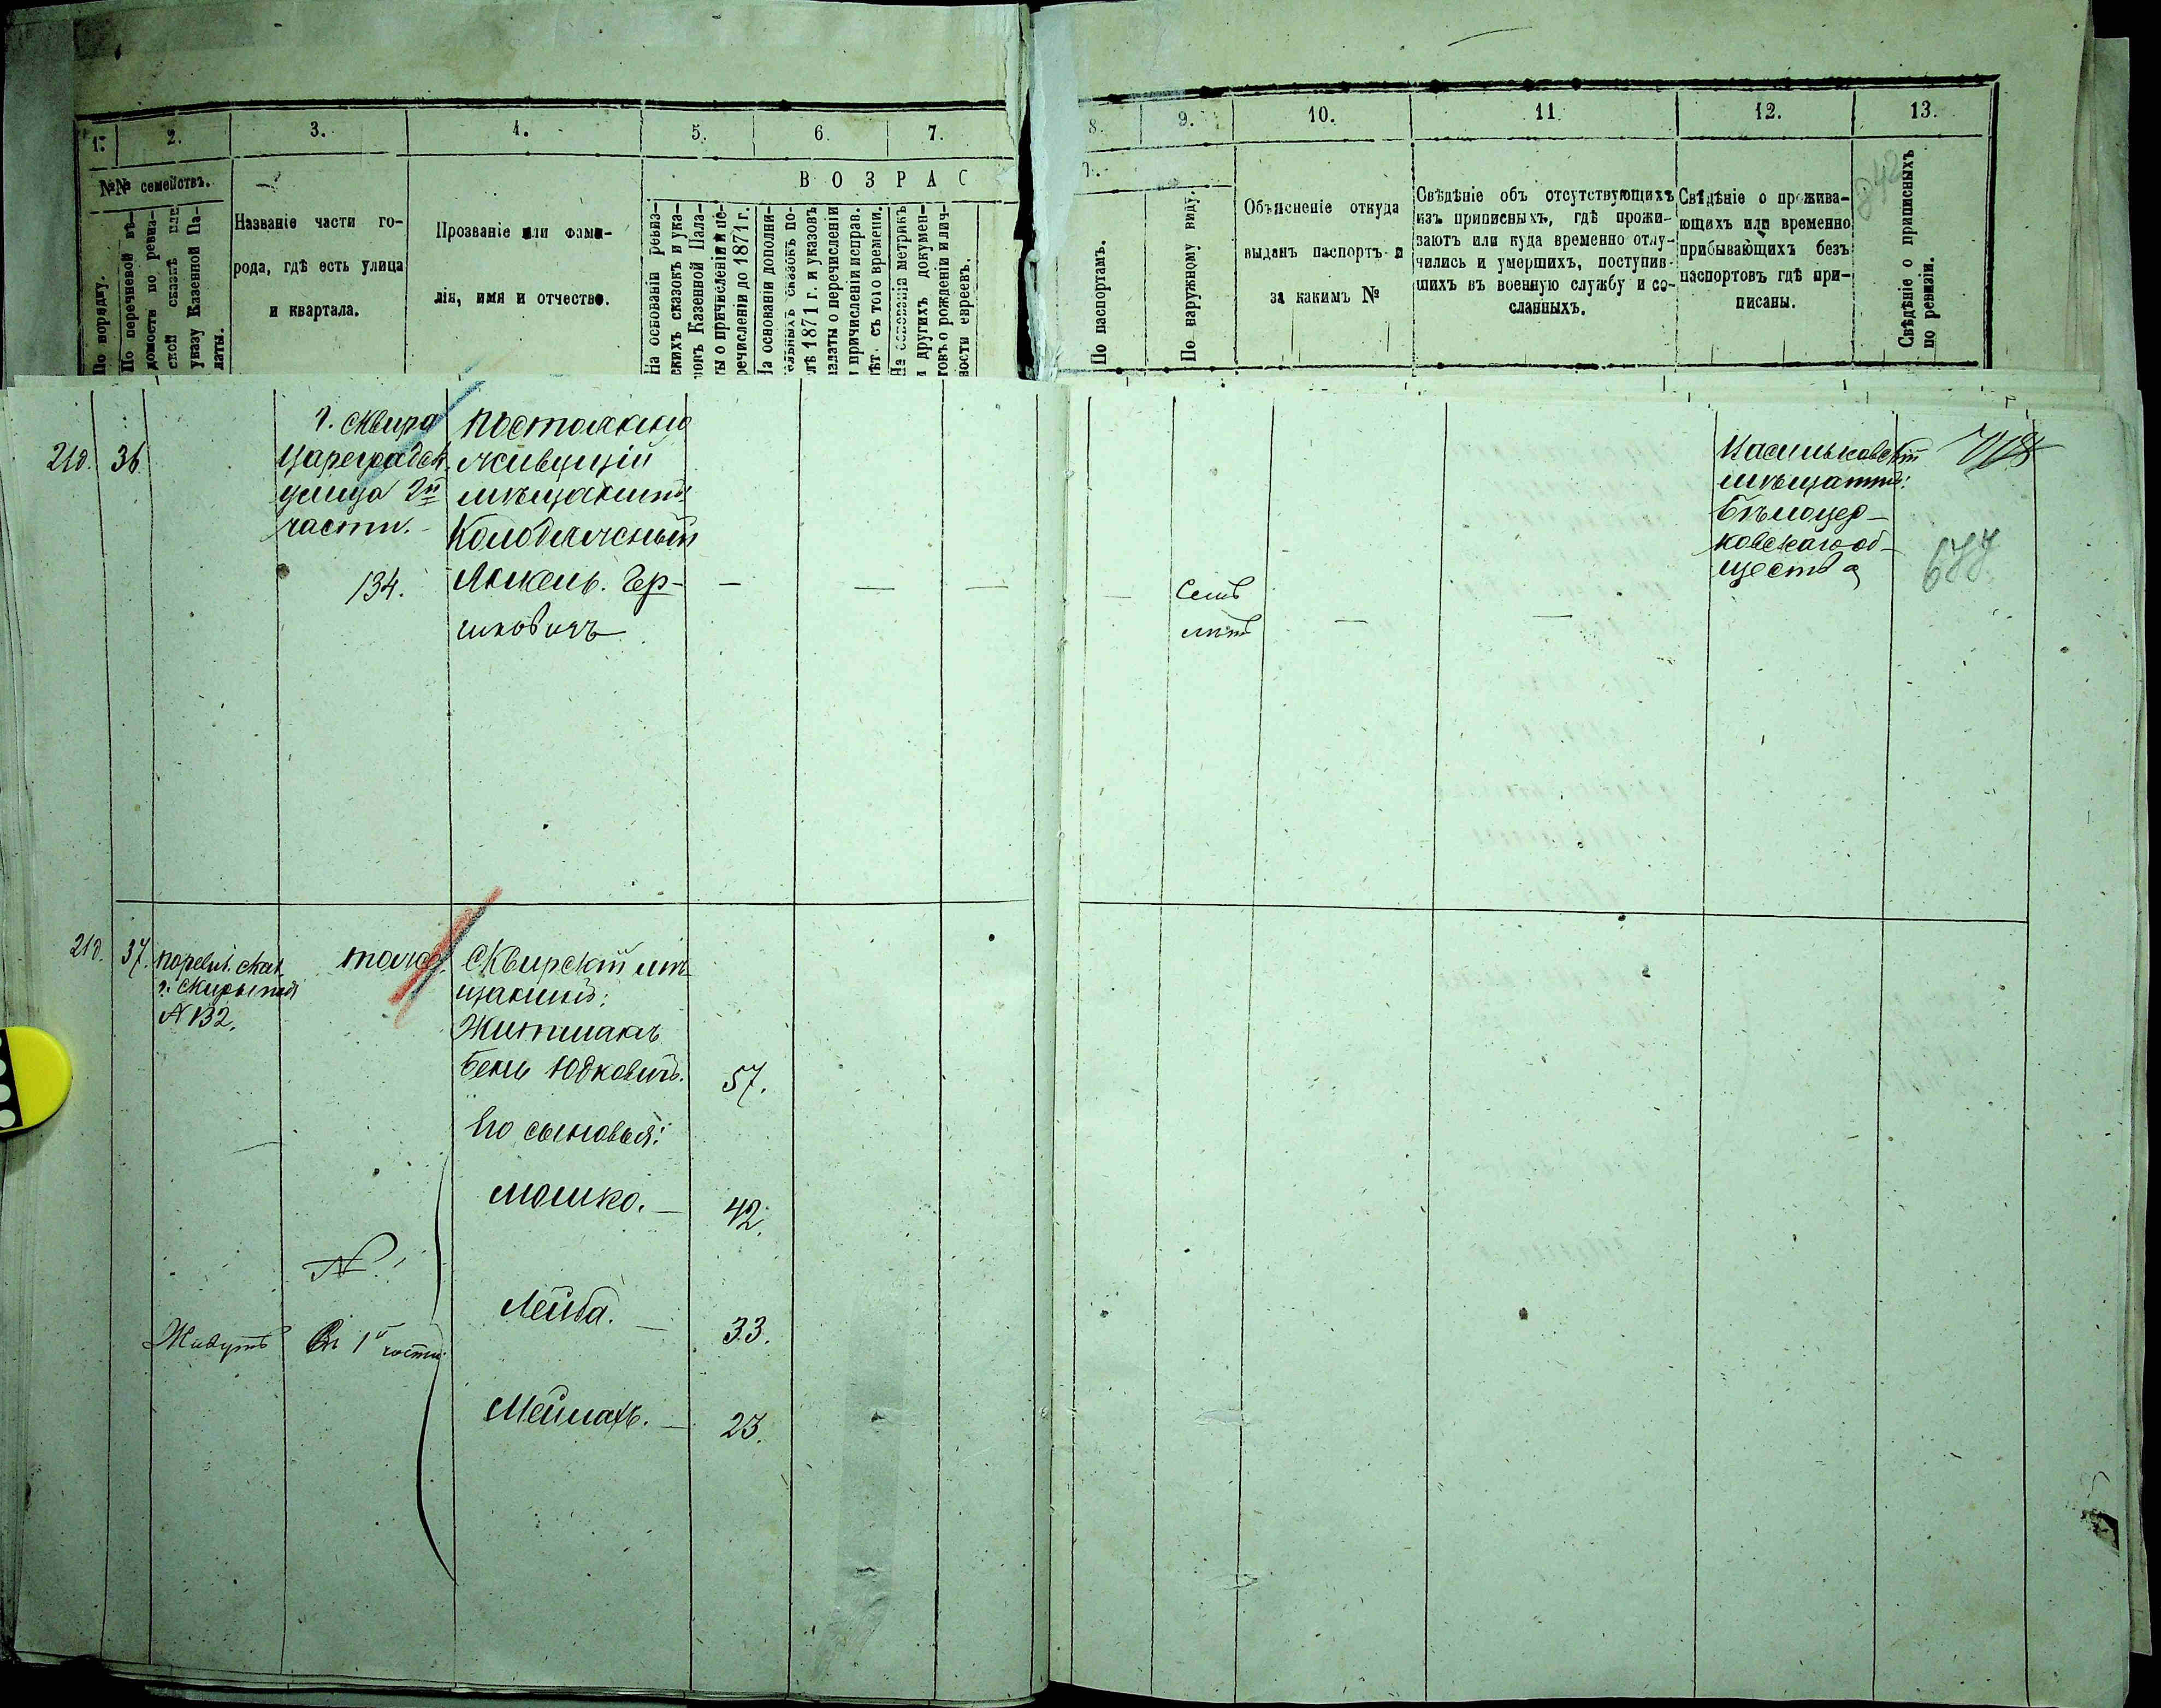 1.
2.
3.
4.
5.
6.
7.
8.
9.
10.
11.
12.
13.
№№ семействъ.
ВОЗРАС
По порядку.
По перечневой вѣ-
домости по ревиз-
ской сказкѣ или
указу Казенной Па-
латы.
Названіе части го-
рода, гдѣ есть улица
и квартала.
Прозваніе или фами-
лія, имя и отчество.
На основаніи ревиз-
скихъ сказокъ и ука-
зовъ Казенной Пала-
ты о причисленіи и пе-
речисленіи до 1871 г.
На основаніи дополни-
тельныхъ сказокъ по-
слѣ 1871 г. и указовъ
палаты о перечисленіи
и причисленіи исправ.
лѣт. съ того времени.
На основаніи метрикъ
и другихъ докумен-
товъ о рожденіи и лич-
ности евреевъ.
По паспортамъ.
По наружному виду.
Объясненіе откуда
выданъ паспортъ и
за какимъ №
Свѣдѣніе объ отсутствующихъ
изъ приписныхъ, гдѣ прожи-
ваютъ или куда временно отлу-
чились и умершихъ, поступив-
шихъ въ военную службу и со-
сланныхъ.
Свѣдѣніе о прожива-
ющихъ или временно
прибывающихъ безъ
паспортовъ гдѣ при-
писаны.
Свѣдѣніе о приписныхъ
по ревизіи.
942
21д. 36
г. Сквира
Цареградск.
улица 2й
части.
134.
постоянно
живущій
мѣщанинъ
Колодяжный
Янкель Гер-
шковичъ
— — — —
Семь
лѣтъ
— —
Васильковскій
мѣщанинъ:
Бѣлоцер-
ковскаго об-
щества
677
21д. 37.
по ревиз. сказ
г. Сквиры под
№132.
тоже.
Сквирскій мѣ-
щанинъ:
Житникъ
Бень Юдковичъ. 57.
Его сыновья:
Мошко. — 42.
Лейба. — 33.
Мейлахъ. — 23.
№!
Живутъ въ 1й части